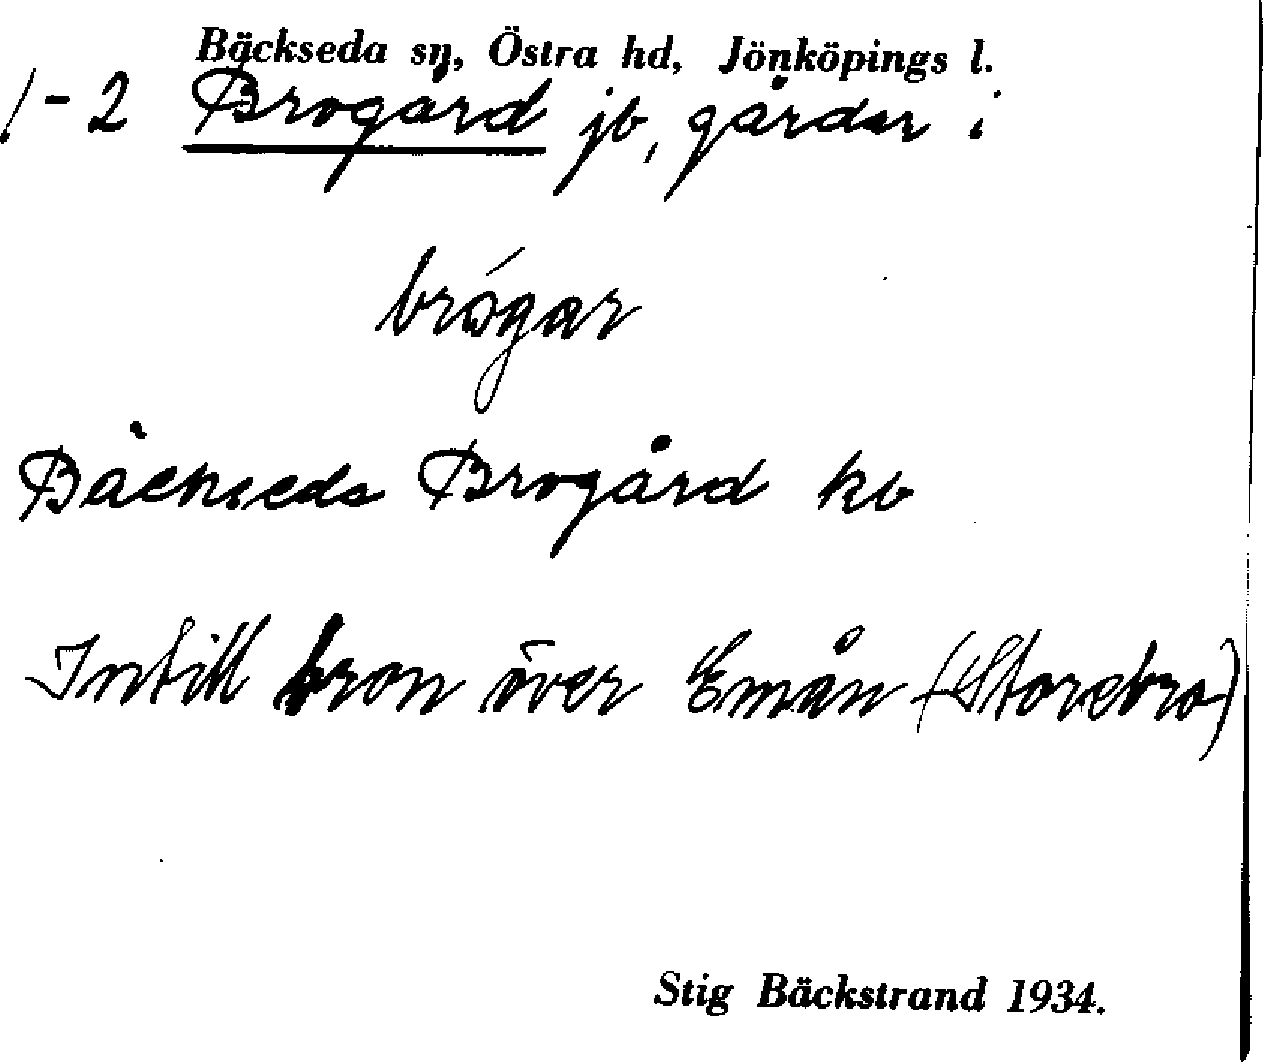 Bäckseda sn, Östra hd, Jönköpings l.
1-2 Brogård jb, gårdar i
brógar
Bäckseda Brogård kb
Intill bron över Emån (Storebro)
Stig Bäckstrand 1934.